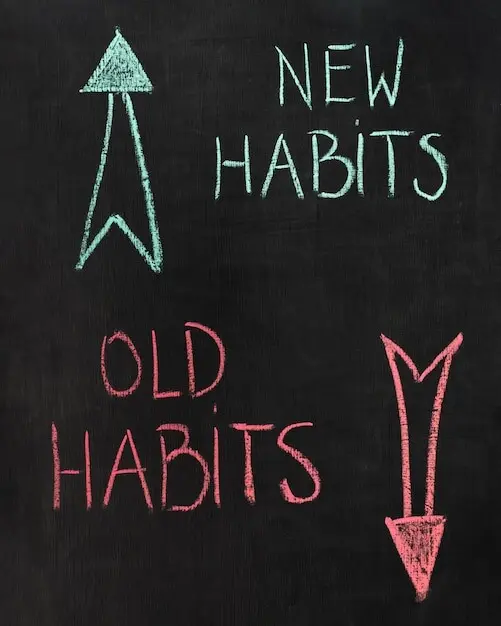 NEW
HABiTS
OLD
HABiTS